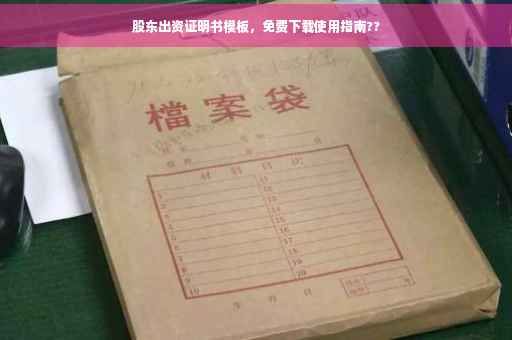 股东出资证明书模板，免费下载使用指南??
檔案袋
材料目次
1 11
2 12
3 13
4 14
5 15
6 16
7 17
8 18
9 19
10 20
年 月 日